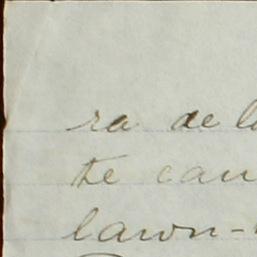 ra de l
the can
lawn-